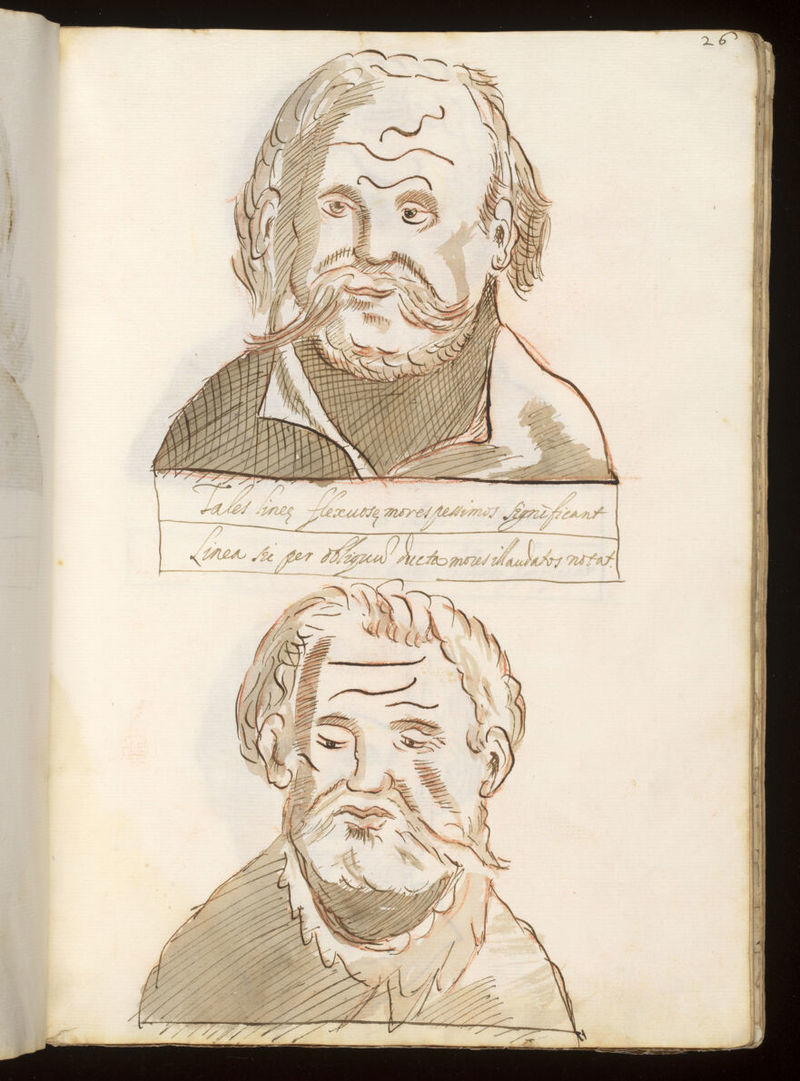 26
Tales lineę flexuosę mores pessimos significant
Linea sic per obliquũ ducta mores illaudatos notat.